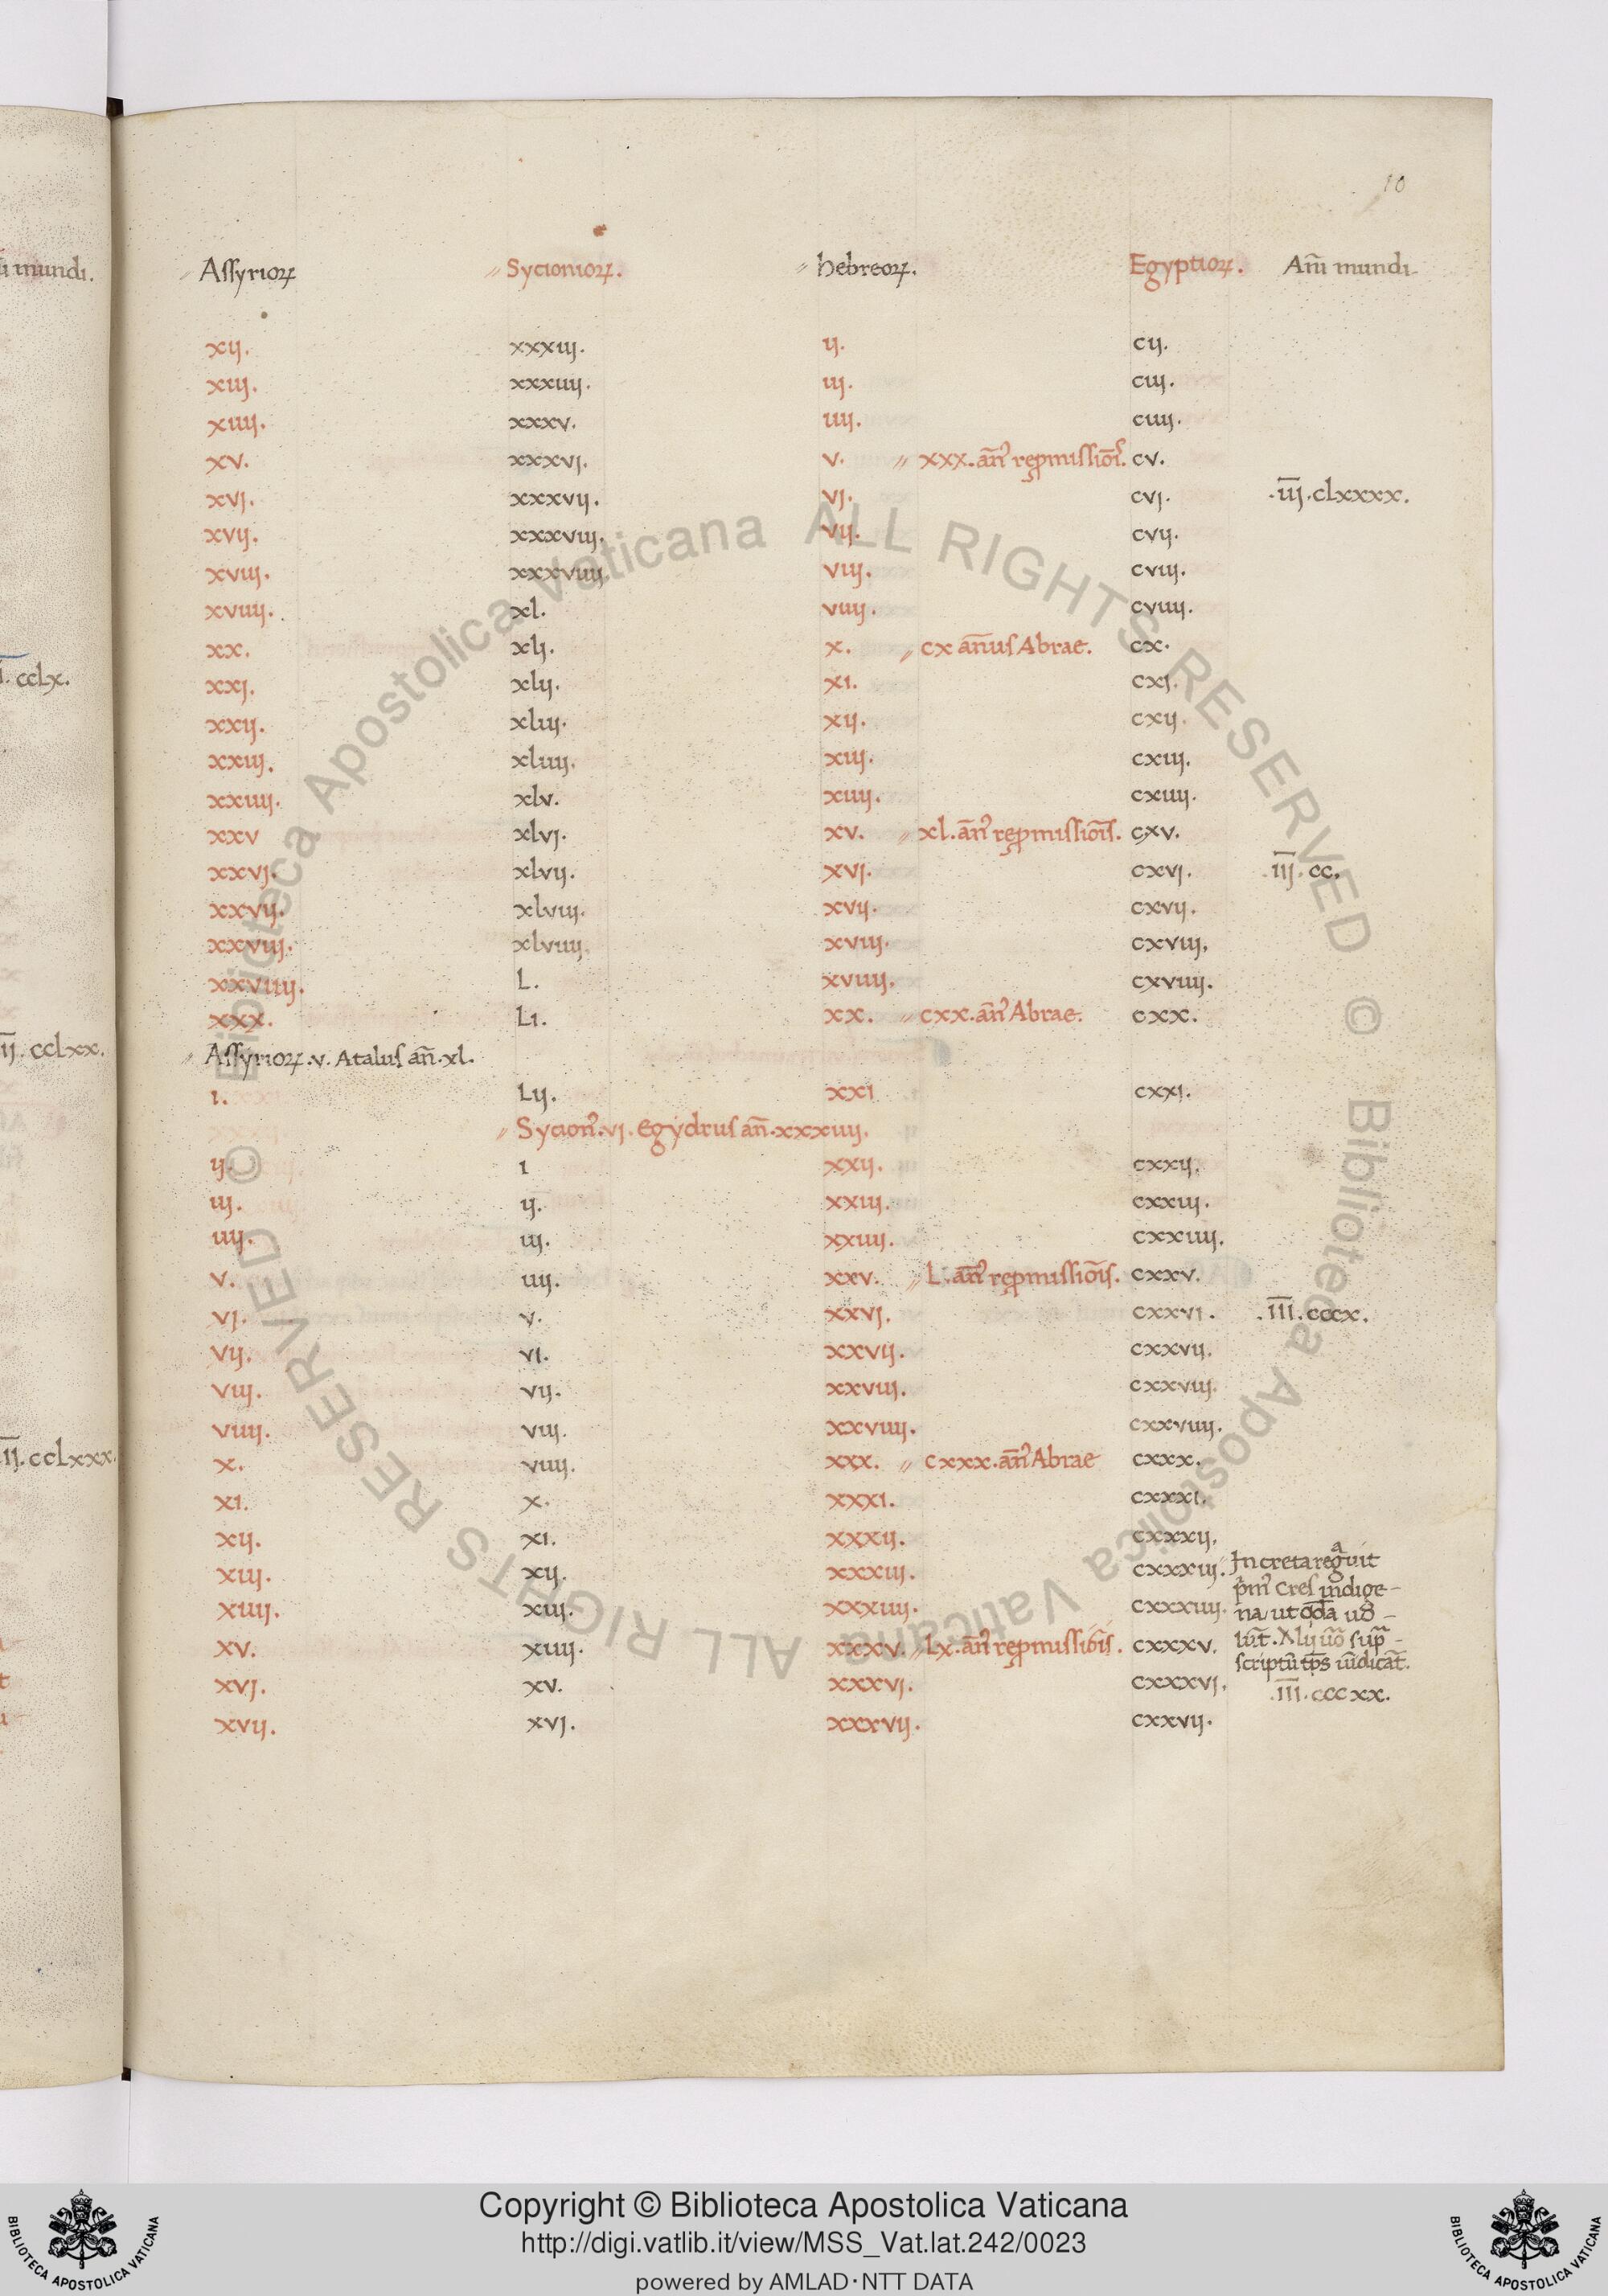 10
Assyrioꝝ Sycionioꝝ. hebreoꝝ. Egyptioꝝ. Anñi mundi
xij. xxxiij. ij. cij.
xiij. xxxiiij. iij. ciij.
xiiij. xxxv. iiij. ciiij.
xv. xxxvj. v. xxx. añ' repmissioñ'. cv.
xvj. xxxvij. vj. cvj. .iij. clxxxx.
xvij. xxxviij. vij. cvij.
xviij. xxxviiij. viij. cviij.
xviiij. xl. viiij. cviiij.
xx. xlj. x. cx añus Abrae. cx.
xxj. xlij. xi. cxj.
xxij. xliij. xij. cxij.
xxiij. xliiij. xiij. cxiij.
xxiiij. xlv. xiiij. cxiiij.
xxv xlvj. xv. xl. añ' repmissiois. cxv.
xxvj. xlvij. xvj. cxvj. .iij. cc.
xxvij. xlviij. xvij. cxvij.
xxviij. xlviiij. xviij. cxviij.
xxviiij. L. xviiij. cxviiij.
xxx. Li. xx. cxx. añ' Abrae. cxx.
Assyrioꝝ .v. Atalus añ. xl.
i. Lij. xxi cxxi.
Sycion' .vj. egydrus añ. xxxiiij.
ij. i xxij. cxxij.
iij. ij. xxiij. cxxiij.
iiij. iij. xxiiij. cxxiiij.
v. iiij. xxv. L. añ' repmissiois. cxxv.
vj. v. xxvj. cxxvi. .iii. cccx.
vij. vi. xxvij. cxxvij.
viij. vij. xxviij. cxxviij.
viiij. viij. xxviiij. cxxviiij.
x. viiij. xxx. cxxx. añ' Abrae cxxx.
xi. x. xxxi. cxxxi.
xij. xi. xxxij. cxxxij.
xiij. xij. xxxiij. cxxxiij. In creta regͣuit
p̃m' cres indige-
xiiij. xiij. xxxiiij. cxxxiiij. na, ut qda uo-
xv. xiiij. xxxv. lx. añ' repmissiois. cxxxv. lut̃. Alij uõ sup̃-
scriptũ tps iudicãt.
xvj. xv. xxxvj. cxxxvj. .iii. cccxx.
xvij. xvj. xxxvij. cxxvij.
ũ mundi.
. cclx.
ij. cclxx.
ij. cclxxx.
© Biblioteca Apostolica Vaticana ALL RIGHTS RESERVED
© Biblioteca Apostolica Vaticana ALL RIGHTS RESERVED
Copyright © Biblioteca Apostolica Vaticana
http://digi.vatlib.it/view/MSS_Vat.lat.242/0023
powered by AMLAD・NTT DATA
BIBLIOTECA APOSTOLICA VATICANA
BIBLIOTECA APOSTOLICA VATICANA